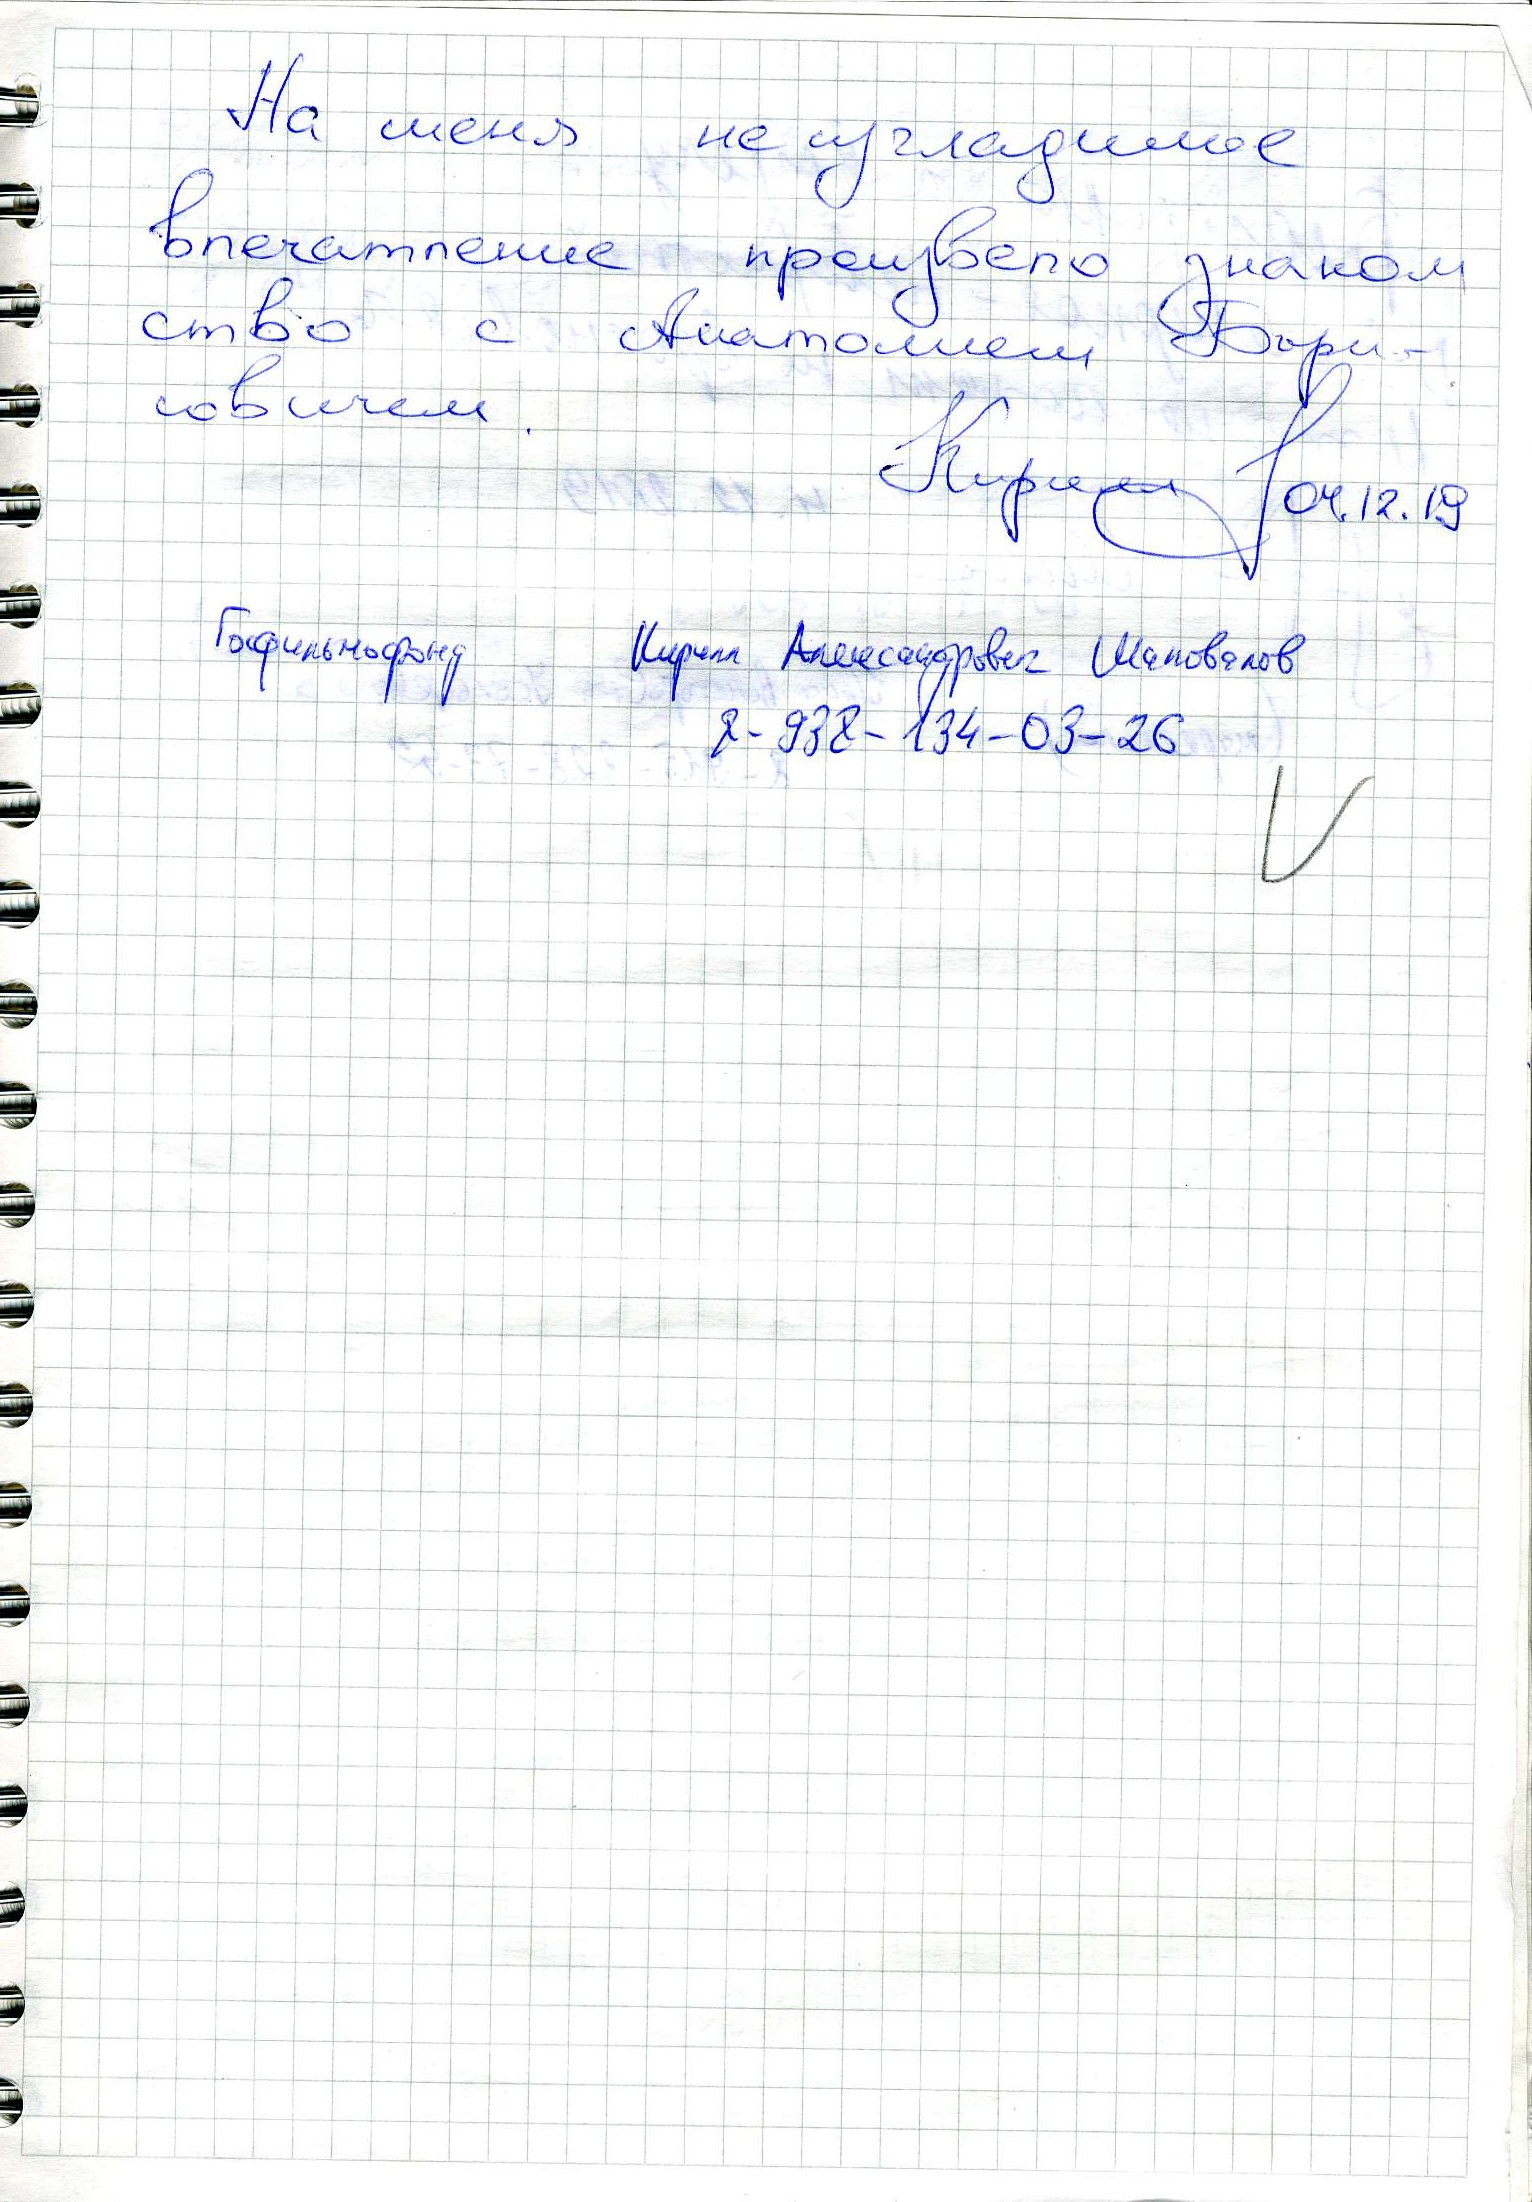 На меня неизгладимое
впечатление произвело знаком
ство с Анатолием Бори-
совичем.
Кирилл 04.12.19
Госфильмофонд Кирилл Александрович Шаповалов
8-938-134-03-26